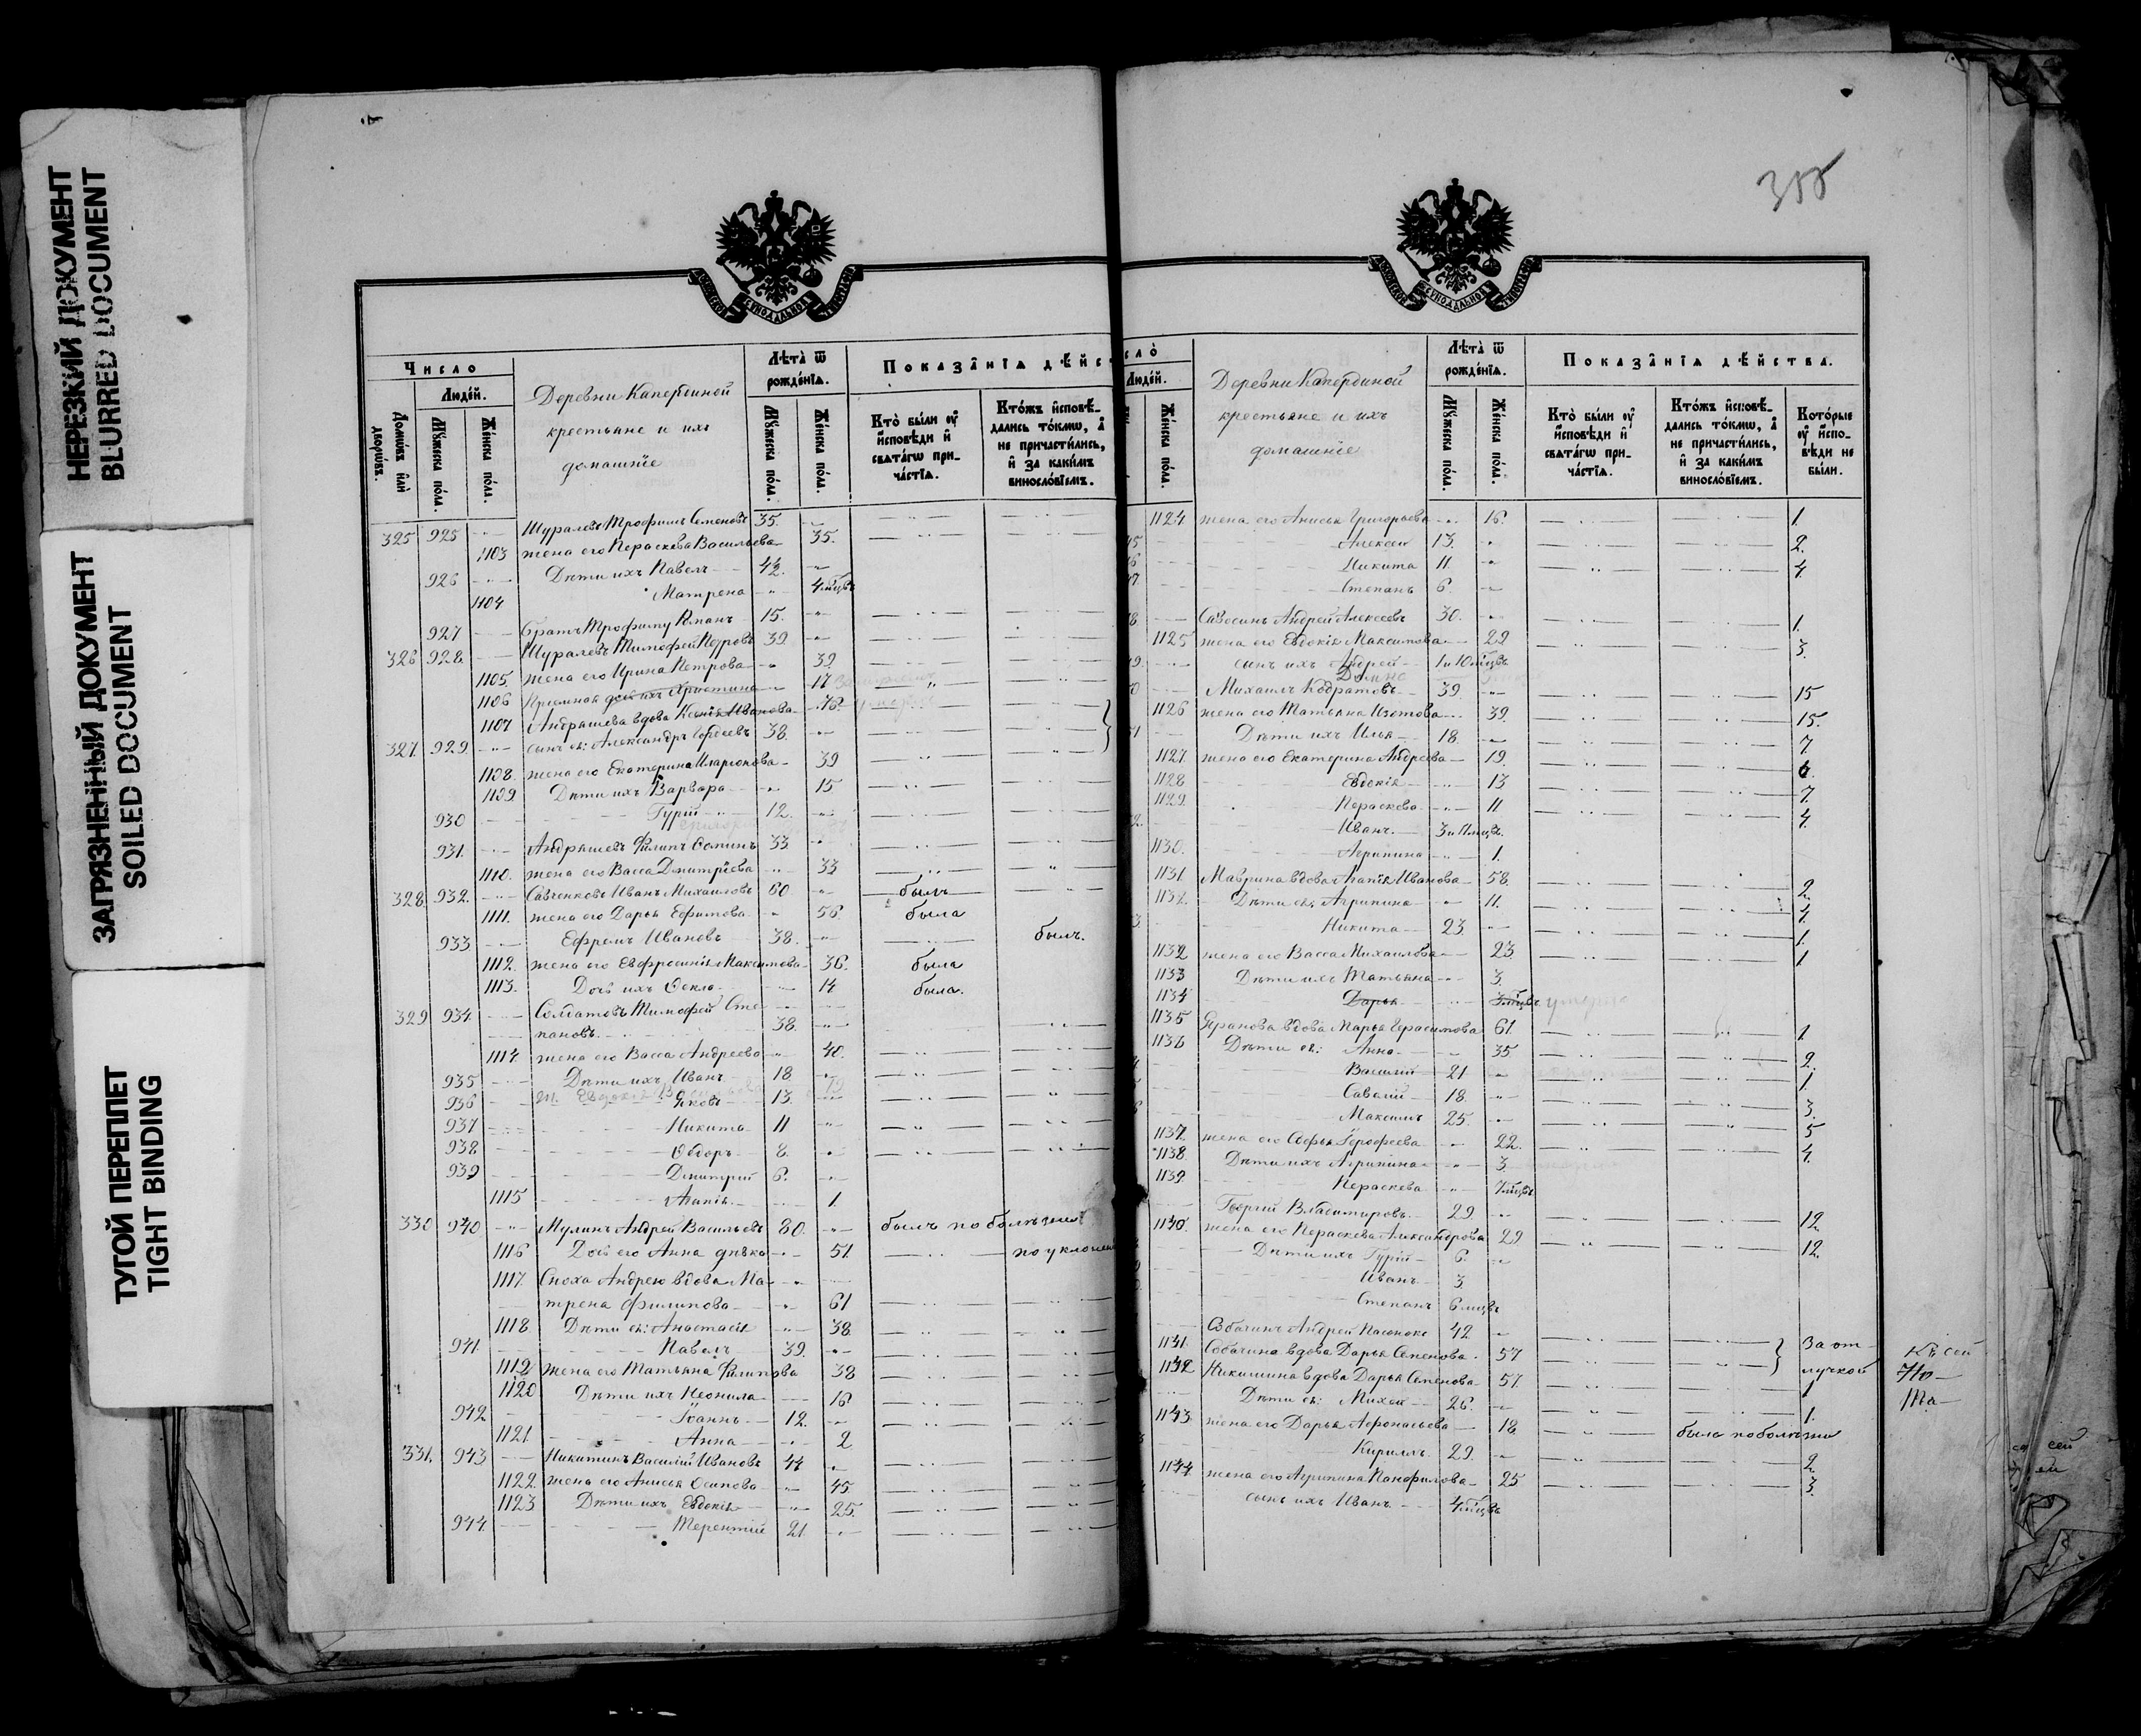 НЕРЕЗКИЙ ДОКУМЕНТ
BLURRED DOCUMENT
ЗАГРЯЗНЕННЫЙ ДОКУМЕНТ
SOILED DOCUMENT
ТУГОЙ ПЕРЕПЛЕТ
TIGHT BINDING
Число
Людей.
Домѡвъ или дворѡвъ.
Мꙋжеска пола.
Женска пола.
Деревни Капердиной
крестьяне и ихъ
домашніе
Лѣта ѿ рожденїѧ.
Мꙋжеска пола.
Женска пола.
Показанїѧ дѣйст
Кто были оу исповѣди и свѧтагѡ причастїѧ.
Ктожъ исповѣдались токмѡ, а не причастились, и за какимъ винословїемъ.
325 925 Шуралевъ Трофимъ Семеновъ 35.
1103 жена его Параскева Васильева 35.
926 Дѣти ихъ Павелъ
1104 Матрена 4 мѣцвъ
927 братъ Трофиму Романъ 15.
326 928 Шуралевъ Тимофей Петровъ 39
1105. жена его Ирина Петрова 39.
1106 Приемная дочь ихъ Христина 17
1107 Андрашева вдова Ксенія Иванова 78
327. 929 сынъ ея: Александръ Гордеевъ 38.
1108. жена его Екатерина Иларіонова 39
1109. Дѣти ихъ Варвара 15
930 Гурій 12.
931. Андрашевъ Филипъ Фоминъ 33
1110. жена его Васса Дмитріева 33
328. 932. Савченковъ Иванъ Михаиловъ 60 былъ
1111. жена его Дарья Ефимова 56. была
933 Ефремъ Ивановъ 38. былъ.
1112. жена его Евфросинія Максимова 36. была
1113. Дочь ихъ Фекла 14 была.
329 934. Солдатовъ Тимофей Сте
пановъ 38.
1114. жена его Васса Андреева 40.
935 Дѣти ихъ Иванъ 18
936 Яковъ 13.
937 Никита 11
938 Ѳедоръ 8.
939 Дмитрій 6.
1115 Агапія 1.
330 940 Мулинъ Андрей Васильевъ 80. былъ по болѣзни
1116 Дочь его Анна дѣвка 51. по уклонен
1117. Сноха Андрею вдова Ма
трена Филипова 61
1118. Дѣти ея: Анастасія 38
941. Павелъ 39.
1119 жена его Татьяна Филипова 38
1120 Дѣти ихъ Неонила 16
942 Іоаннъ 12.
1121. Анна 2
331. 943 Никитинъ Василій Ивановъ 44
1122. жена его Анисья Осипова 45
1123 Дѣти ихъ Евдокія 25.
944. Терентій 21.
355
сло
Людей.
Женска пола.
Деревни Капердиной
крестьяне и ихъ
домашніе
Лѣта ѿ рожденїѧ.
Мꙋжеска пола.
Женска пола.
Показанїѧ дѣйства.
Кто были оу исповѣди и свѧтагѡ причастїѧ.
Ктожъ исповѣдались токмѡ, а не причастились, и за какимъ винословїемъ.
Которые оу исповѣди не были.
1124. жена его Анисья Григорьева 16. 1.
Алексей 13. 2.
Никита 11. 4.
Степанъ 6.
Савосинъ Андрей Алексеевъ 30. 1.
1125 жена его Евдокія Максимова 29 3.
сынъ ихъ Андрей 1 и 10 мѣцвъ
Михаилъ Кодратовъ 39. 15
1126 жена его Татьяна Изотова 39. 15.
Дѣти ихъ Илья 18. 7.
1127. жена его Екатерина Андреева 19. 6.
1128 Евдокія 13 7.
1129. Параскева 11 4.
Иванъ 3 и 11 мѣцвъ.
1130. Агрипина 1.
1131 Маврина вдова Агапія Иванова 58. 2.
1132. Дѣти ея: Агрипина 11. 4.
Никита 23. 1.
1132 жена его Васса Михаилова 23 1
1133 Дѣти ихъ Татьяна 3.
1134 Дарья 3 мѣцвъ умерла
1135 вдова Марья Герасимова 61. 1.
1136 Дѣти ея: Анна 35 2.
Василій 21 1.
Савелій 18. 3.
Максимъ 25. 5
1137. жена его Софья Ерофеева 22. 4.
1138. Дѣти ихъ Агрипина 3.
1139. Параскева 7 мѣцвъ
Георгій Владимировъ 29. 12.
1140. жена его Параскева Александрова 29 12.
Дѣти ихъ Гурій 6.
Иванъ 3.
Степанъ 6 мцвъ
Собачинъ Андрей 42.
1141. Собачина вдова Дарья Семенова 57 За от
лучкой
1142 Никишина вдова Дарья Семенова 57. 1
Дѣти ея: Михей 26. 1.
1143. жена его Дарья Афонасьева 18 была по болѣзни
Кирилъ 29. 2.
1144. жена его Агрипина Панфилова 25 3.
сынъ ихъ Иванъ 4 мѣцвъ
Къ сей